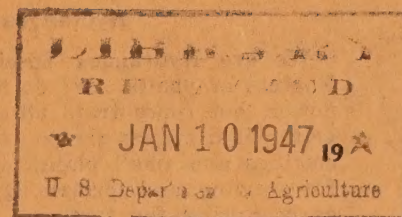 LIBRARY
RECEIVED
★ JAN 10 1947 19 ★
U S Department of Agriculture